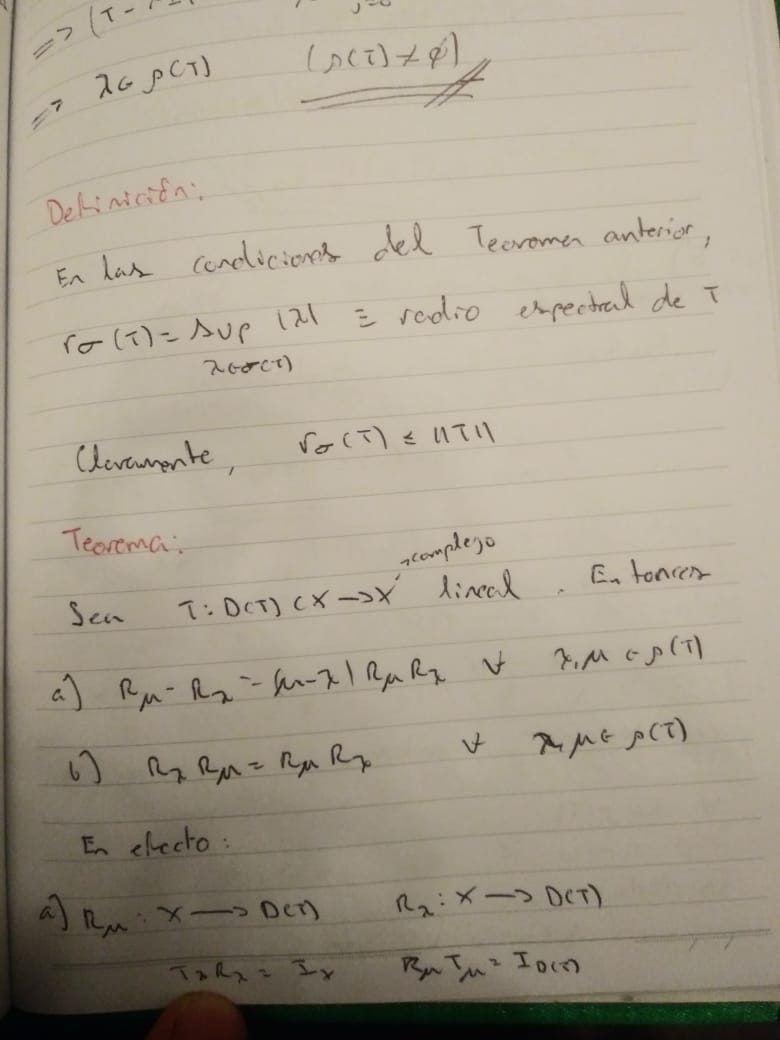 => (T-
=> λ∈ρ(T) (ρ(T)≠∅)
Definición:
En las condiciones del Teorema anterior,
rσ(T) = sup |λ| ≡ radio espectral de T
λ∈σ(T)
Claramente, rσ(T) ≤ ||T||
Teorema:
complejo
Sea T: D(T) ⊂ X → X lineal. Entonces
a) Rμ - Rλ = (μ-λ) Rμ Rλ ∀ λ, μ ∈ ρ(T)
b) Rλ Rμ = Rμ Rλ ∀ λ, μ ∈ ρ(T)
En efecto:
a) Rμ: X → D(T) Rλ: X → D(T)
Tλ Rλ = Ix Rμ Tμ = I D(T)